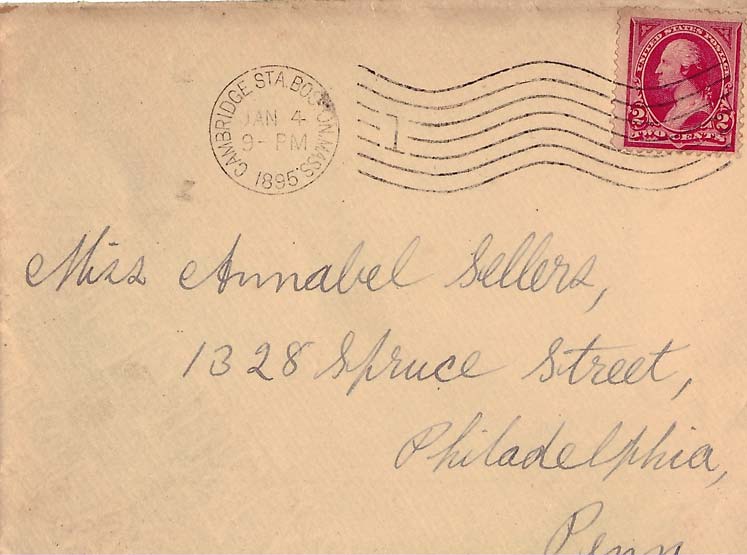 CAMBRIDGE STA. BOSTON, MASS.
JAN 4
9- PM
1895
1
UNITED STATES POSTAGE
2 2
TWO CENTS
Miss Annabel Sellers,
1328 Spruce Street,
Philadelphia,
Penn